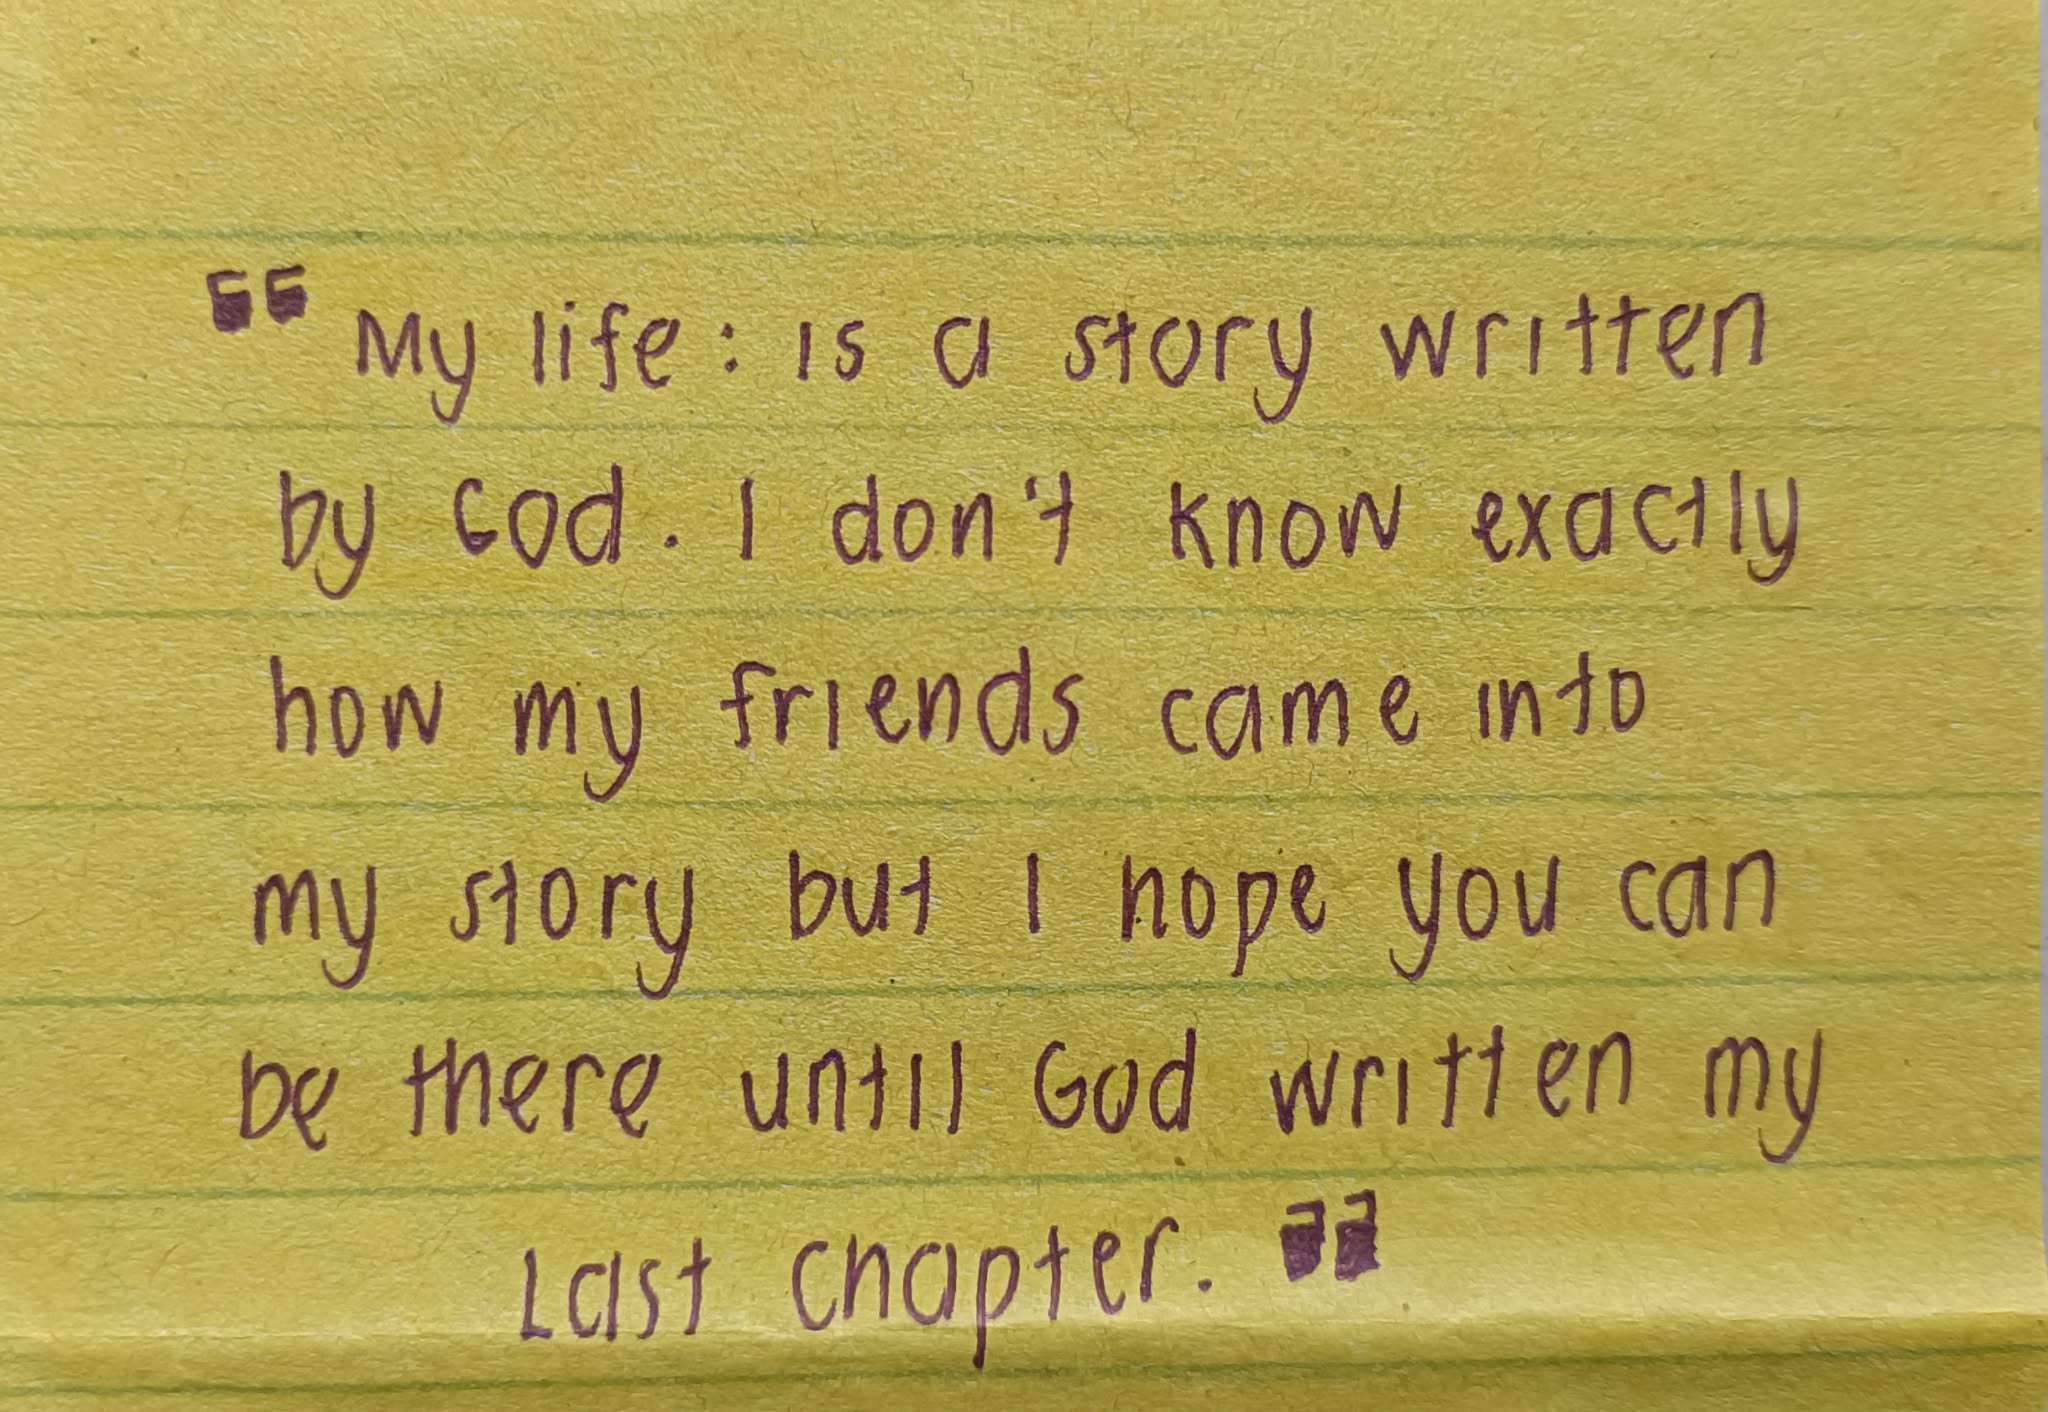 “ My life : is a story written
by God. I don't know exactly
how my friends came into
my story but I hope you can
be there until God written my
Last chapter. ”